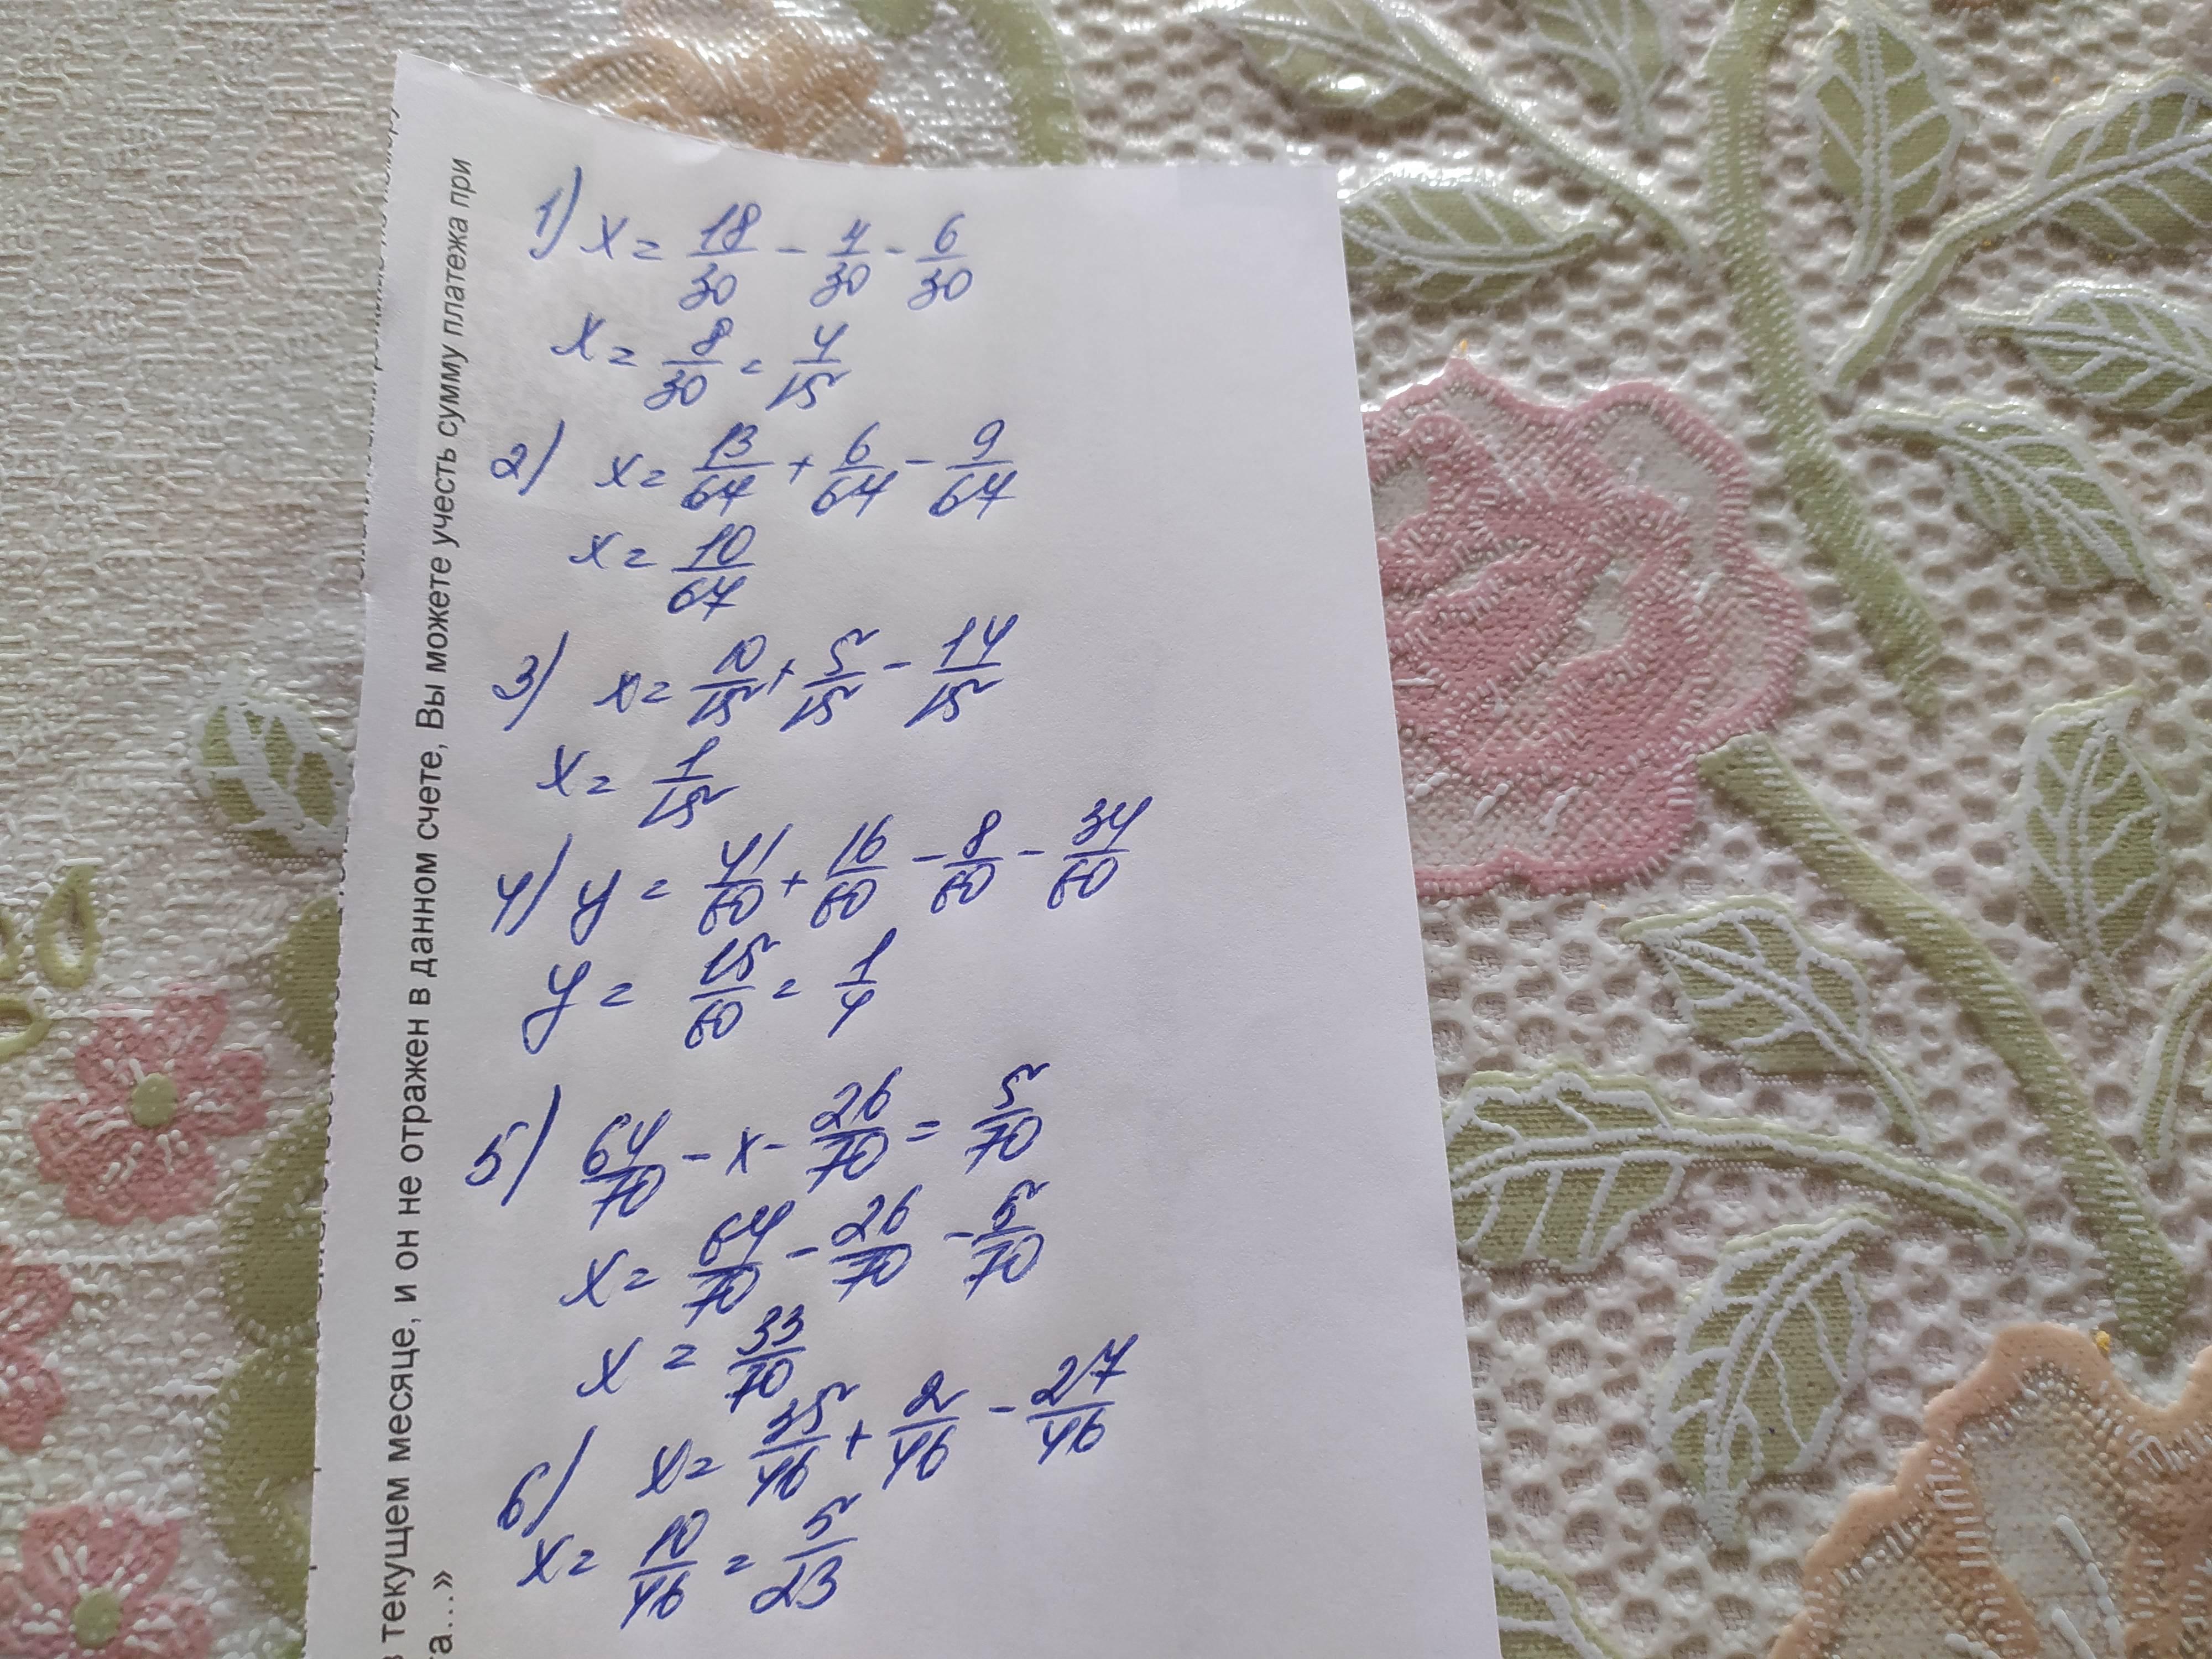 1) x = 18/30 - 4/30 - 6/30
x = 8/30 = 4/15
2) x = 13/64 + 6/64 - 9/64
x = 10/64
3) x = 10/15 + 5/15 - 14/15
x = 1/15
4) y = 41/60 + 16/60 - 8/60 - 34/60
y = 15/60 = 1/4
5) 64/70 - x - 26/70 = 5/70
x = 64/70 - 26/70 - 5/70
x = 33/70
6) x = 35/46 + 2/46 - 27/46
x = 10/46 = 5/23
текущем месяце, и он не отражен в данном счете, Вы можете учесть сумму платежа при
та...»